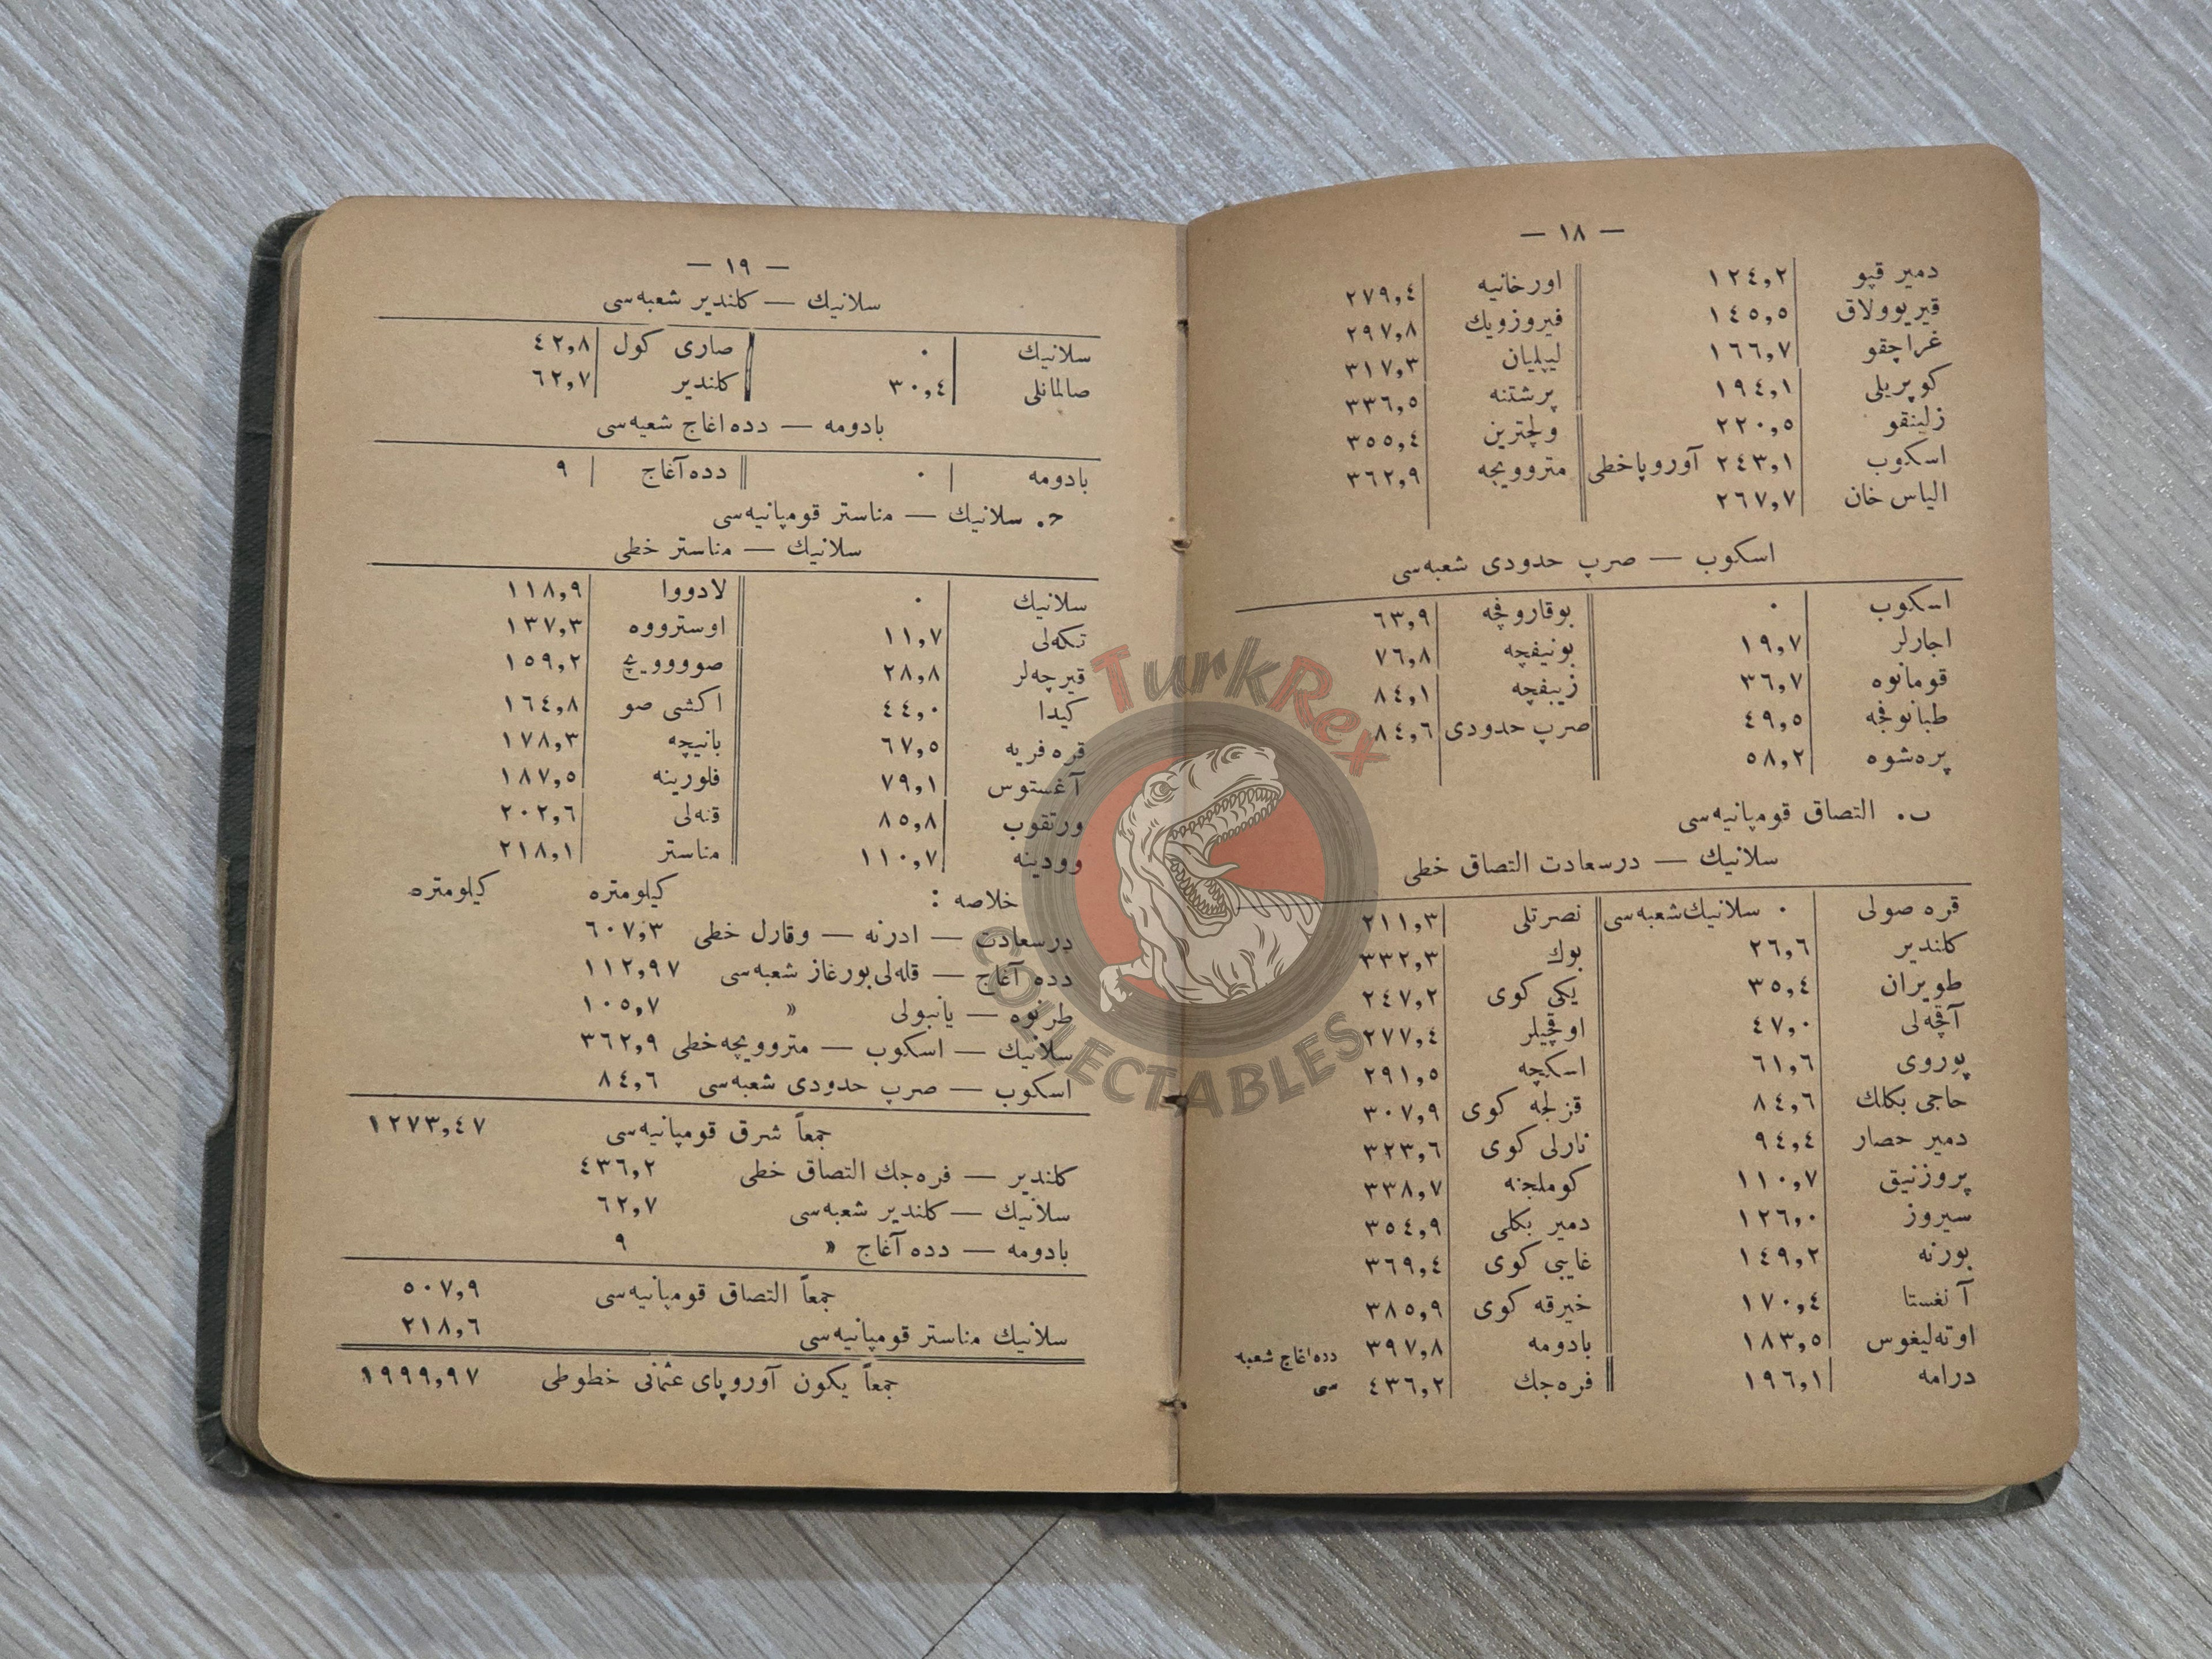 — ١٨ —
دمير قپو ١٢٤,٢ اورخانيه ٢٧٩,٤
قيريوولاق ١٤٥,٥ فيروزويك ٢٩٧,٨
غراچقو ١٦٦,٧ ليپليان ٣١٧,٣
كوپريلى ١٩٤,١ پرشتنه ٣٣٦,٥
زلينقو ٢٢٠,٥ ولچترين ٣٥٥,٤
اسكوب ٢٤٣,١ آوروپا خطى متروويچه ٣٦٢,٩
الياس خان ٢٦٧,٧
اسكوب — صرپ حدودى شعبه‌سى
اسكوب ٠ بوقاروفچه ٦٣,٩
اجارلر ١٩,٧ بونيفچه ٧٦,٨
قومانوه ٣٦,٧ زيبفچه ٨٤,١
طبانوفچه ٤٩,٥ صرپ حدودى ٨٤,٦
پره‌شوه ٥٨,٢
ب. التصاق قومپانيه‌سى
سلانيك — درسعادت التصاق خطى
قره صولى ٠ سلانيك شعبه‌سى نصرتلى ٢١١,٣
كلندير ٢٦,٦ بوك ٣٣٢,٣
طويران ٣٥,٤ يكى كوى ٢٤٧,٢
آقچه‌لى ٤٧,٠ اوقچيلر ٢٧٧,٤
پوروى ٦١,٦ اسكچه ٢٩١,٥
حاجى بكلك ٨٤,٦ قزلجه كوى ٣٠٧,٩
دمير حصار ٩٤,٤ نارلى كوى ٣٢٣,٦
پروزنيق ١١٠,٧ كوملجنه ٣٣٨,٧
سيروز ١٢٦,٠ دمير بكلى ٣٥٤,٩
بورنه ١٤٩,٢ غايبى كوى ٣٦٩,٤
آنغستا ١٧٠,٤ خيرقه كوى ٣٨٥,٩
اوته‌ليغوس ١٨٣,٥ بادومه ٣٩٧,٨ دده اغاج شعبه
درامه ١٩٦,١ فره‌جك ٤٣٦,٢ سى
— ١٩ —
سلانيك — كلندير شعبه‌سى
سلانيك ٠ صارى كول ٤٢,٨
صالمانلى ٣٠,٤ كلندير ٦٢,٧
بادومه — دده اغاج شعبه‌سى
بادومه ٠ دده آغاج ٩
ح. سلانيك — مناستر قومپانيه‌سى
سلانيك — مناستر خطى
سلانيك ٠ لادووا ١١٨,٩
تكه‌لى ١١,٧ اوسترووه ١٣٧,٣
قيرچه‌لر ٢٨,٨ صوووويچ ١٥٩,٢
كيدا ٤٤,٠ اكشى صو ١٦٤,٨
قره فريه ٦٧,٥ بانيچه ١٧٨,٣
آغستوس ٧٩,١ فلورينه ١٨٧,٥
ورتقوب ٨٥,٨ قنه‌لى ٢٠٢,٦
وودينه ١١٠,٧ مناستر ٢١٨,١
خلاصه : كيلومتره كيلومتره
درسعادت — ادرنه — وقارل خطى ٦٠٧,٣
دده آغاج — قله‌لى بورغاز شعبه‌سى ١١٢,٩٧
طرنوه — يانبولى » ١٠٥,٧
سلانيك — اسكوب — متروويچه خطى ٣٦٢,٩
اسكوب — صرپ حدودى شعبه‌سى ٨٤,٦
جمعاً شرق قومپانيه‌سى ١٢٧٣,٤٧
كلندير — فره‌جك التصاق خطى ٤٣٦,٢
سلانيك — كلندير شعبه‌سى ٦٢,٧
بادومه — دده آغاج » ٩
جمعاً التصاق قومپانيه‌سى ٥٠٧,٩
سلانيك مناستر قومپانيه‌سى ٢١٨,٦
جمعاً يكون آوروپاى عثمانى خطوطى ١٩٩٩,٩٧
TurkRex
COLLECTABLES